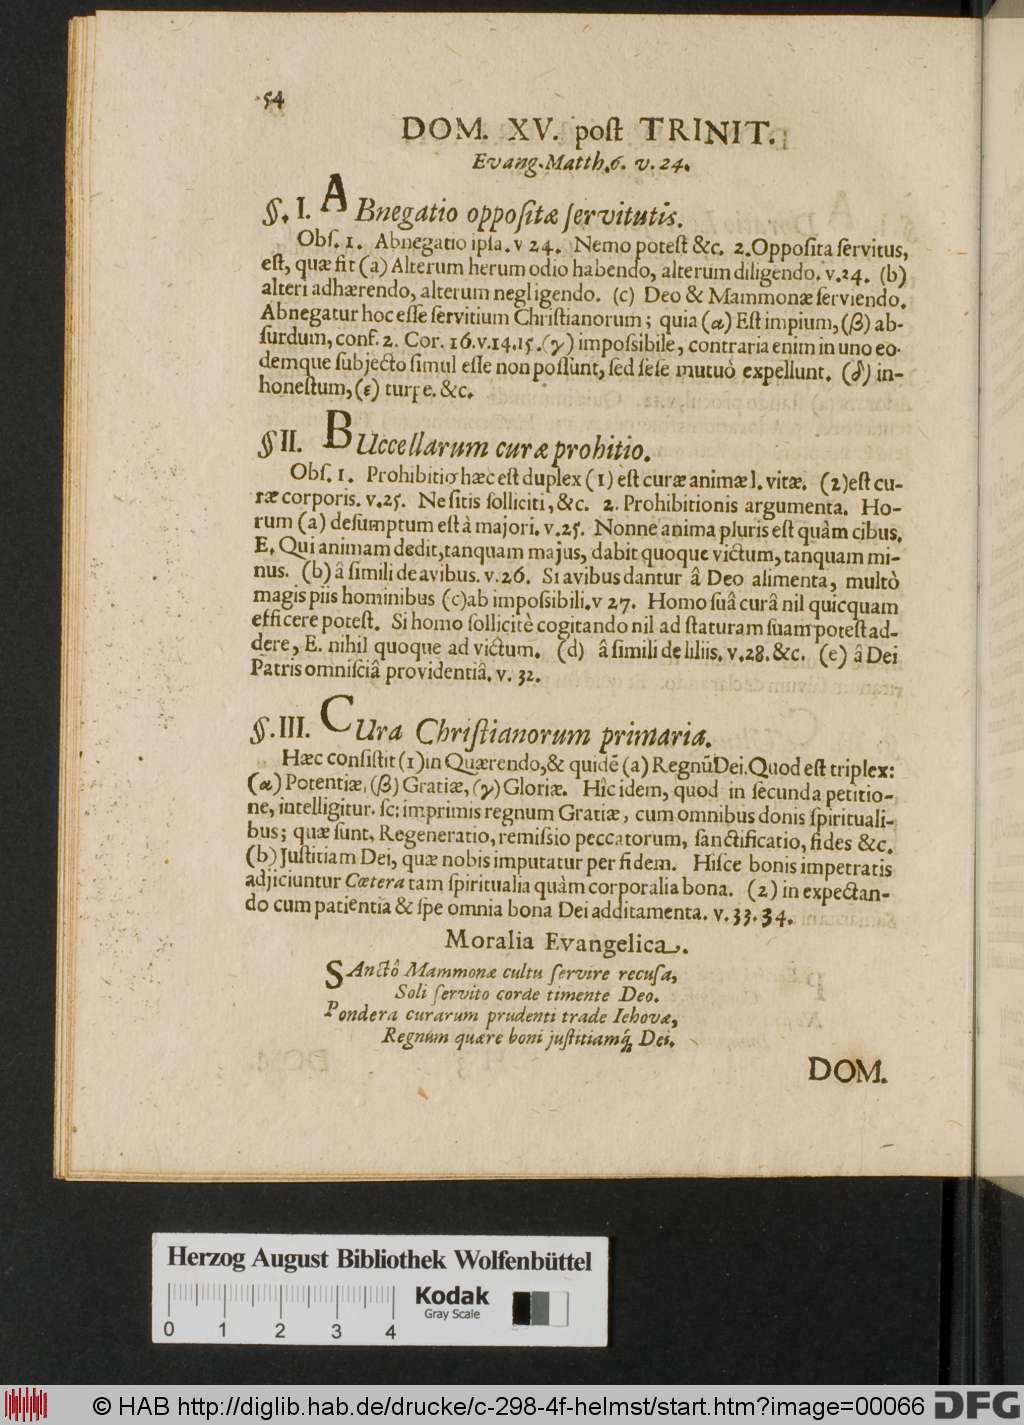 54
DOM. XV. poſt TRINIT.
Evang. Matth. 6. v. 24.
§. I. ABnegatio oppoſitæ ſervitutis.
Obſ. 1. Abnegatio ipſa. v 24. Nemo poteſt &c. 2. Oppoſita ſervitus,
eſt, quæ fit (a) Alterum herum odio habendo, alterum diligendo. v. 24. (b)
alteri adhærendo, alterum negligendo. (c) Deo & Mammonæ ſerviendo.
Abnegatur hoc eſſe ſervitium Chriſtianorum; quia (α) Eſt impium, (β) ab-
ſurdum, conf. 2. Cor. 16. v. 14. 15. (γ) impoſsibile, contraria enim in uno eo-
demque ſubjecto ſimul eſſe non poſſunt, ſed ſeſe mutuò expellunt. (δ) in-
honeſtum, (ε) turpe. &c.
§ II. BUccellarum curæ prohitio.
Obſ. 1. Prohibitio hæc eſt duplex (1) eſt curæ animæ l. vitæ. (2) eſt cu-
ræ corporis. v. 25. Ne ſitis ſolliciti, &c. 2. Prohibitionis argumenta. Ho-
rum (a) deſumptum eſt à majori. v. 25. Nonne anima pluris eſt quàm cibus.
E. Qui animam dedit, tanquam majus, dabit quoque victum, tanquam mi-
nus. (b) â ſimili de avibus. v. 26. Si avibus dantur â Deo alimenta, multò
magis piis hominibus (c) ab impoſsibili. v 27. Homo ſuâ curâ nil quicquam
efficere poteſt. Si homo ſollicitè cogitando nil ad ſtaturam ſuam poteſt ad-
dere, E. nihil quoque ad victum. (d) â ſimili de liliis. v. 28. &c. (e) â Dei
Patris omniſciâ providentiâ. v. 32.
§. III. CUra Chriſtianorum primaria.
Hæc conſiſtit (1) in Quærendo, & quidē (a) Regnū Dei. Quod eſt triplex:
(α) Potentiæ, (β) Gratiæ, (γ) Gloriæ. Hîc idem, quod in ſecunda petitio-
ne, intelligitur. ſc: imprimis regnum Gratiæ, cum omnibus donis ſpirituali-
bus; quæ ſunt, Regeneratio, remiſsio peccatorum, ſanctificatio, fides &c.
(b) Juſtitiam Dei, quæ nobis imputatur per fidem. Hiſce bonis impetratis
adjiciuntur Cœtera tam ſpiritualia quàm corporalia bona. (2) in expectan-
do cum patientia & ſpe omnia bona Dei additamenta. v. 33. 34.
Moralia Evangelica.
SAnctô Mammonæ cultu ſervire recuſa,
Soli ſervito corde timente Deo.
Pondera curarum prudenti trade Iehovæ,
Regnum quære boni juſtitiamq́; Dei.
DOM.
Herzog August Bibliothek Wolfenbüttel
Kodak
Gray Scale
0 1 2 3 4
© HAB http://diglib.hab.de/drucke/c-298-4f-helmst/start.htm?image=00066 DFG